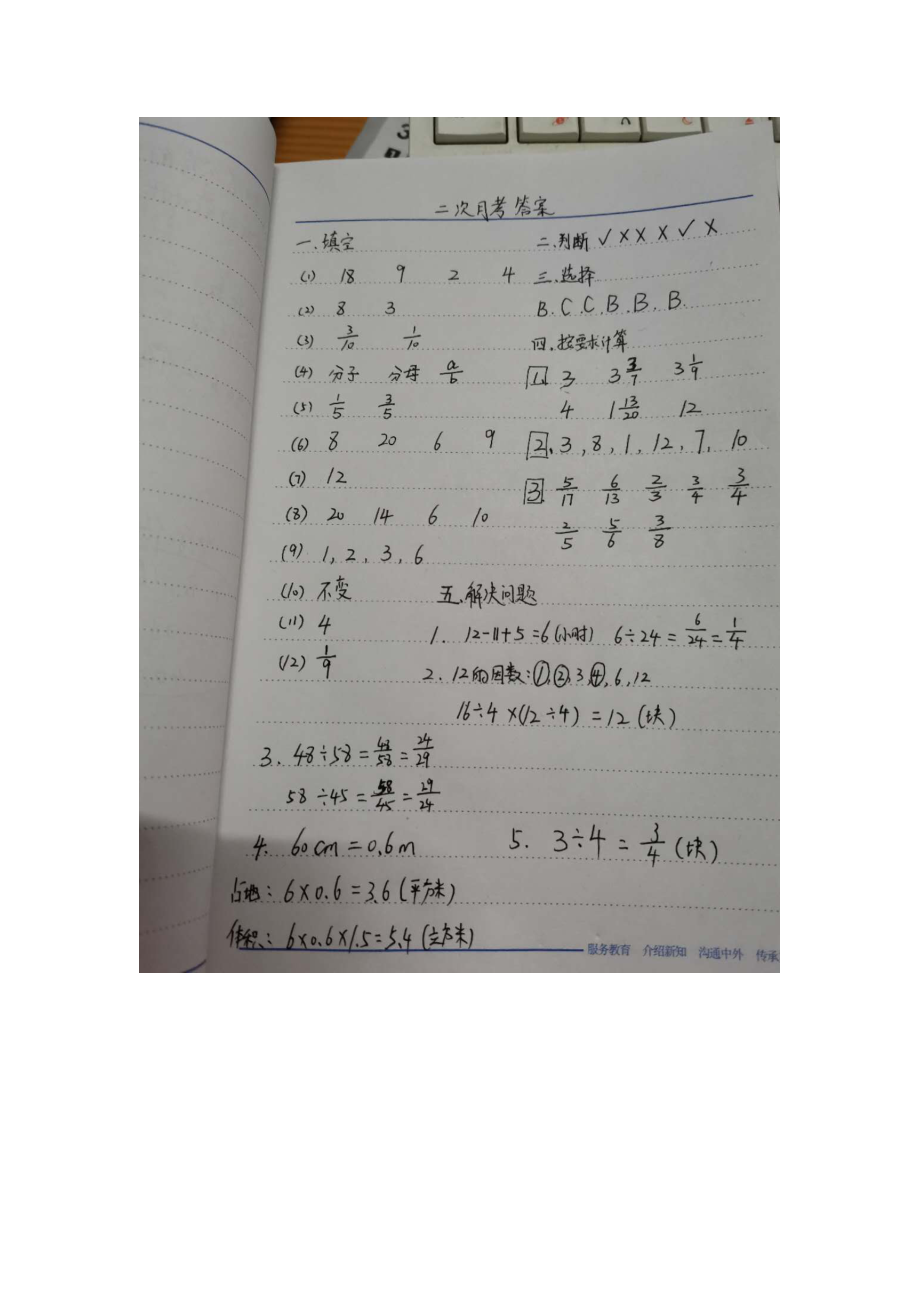 二次月考答案
一、填空
(1) 18 9 2 4
(2) 8 3
(3) 3/10 1/10
(4) 分子 分母 a/b
(5) 1/5 3/5
(6) 8 20 6 9
(7) 12
(8) 20 14 6 10
(9) 1, 2, 3, 6
(10) 不变
(11) 4
(12) 1/9
二、判断 √ × × × √ ×
三、选择
B. C. C. B. B. B.
四、按要求计算
1. 3 3 3/7 3 1/9
4 1 13/20 12
2. 3, 8, 1, 12, 7, 10
3. 5/17 6/13 2/3 3/4 3/4
2/5 5/6 3/8
五、解决问题
1. 12-11+5=6(小时) 6÷24=6/24=1/4
2. 12的因数:①,②,3,④,6,12
16÷4×(12÷4)=12(块)
3. 48÷58=48/58=24/29
58÷45=58/45=29/24
4. 60cm=0.6m
占地:6×0.6=3.6(平方米)
体积:6×0.6×1.5=5.4(立方米)
5. 3÷4=3/4(块)
服务教育 介绍新知 沟通中外 传承